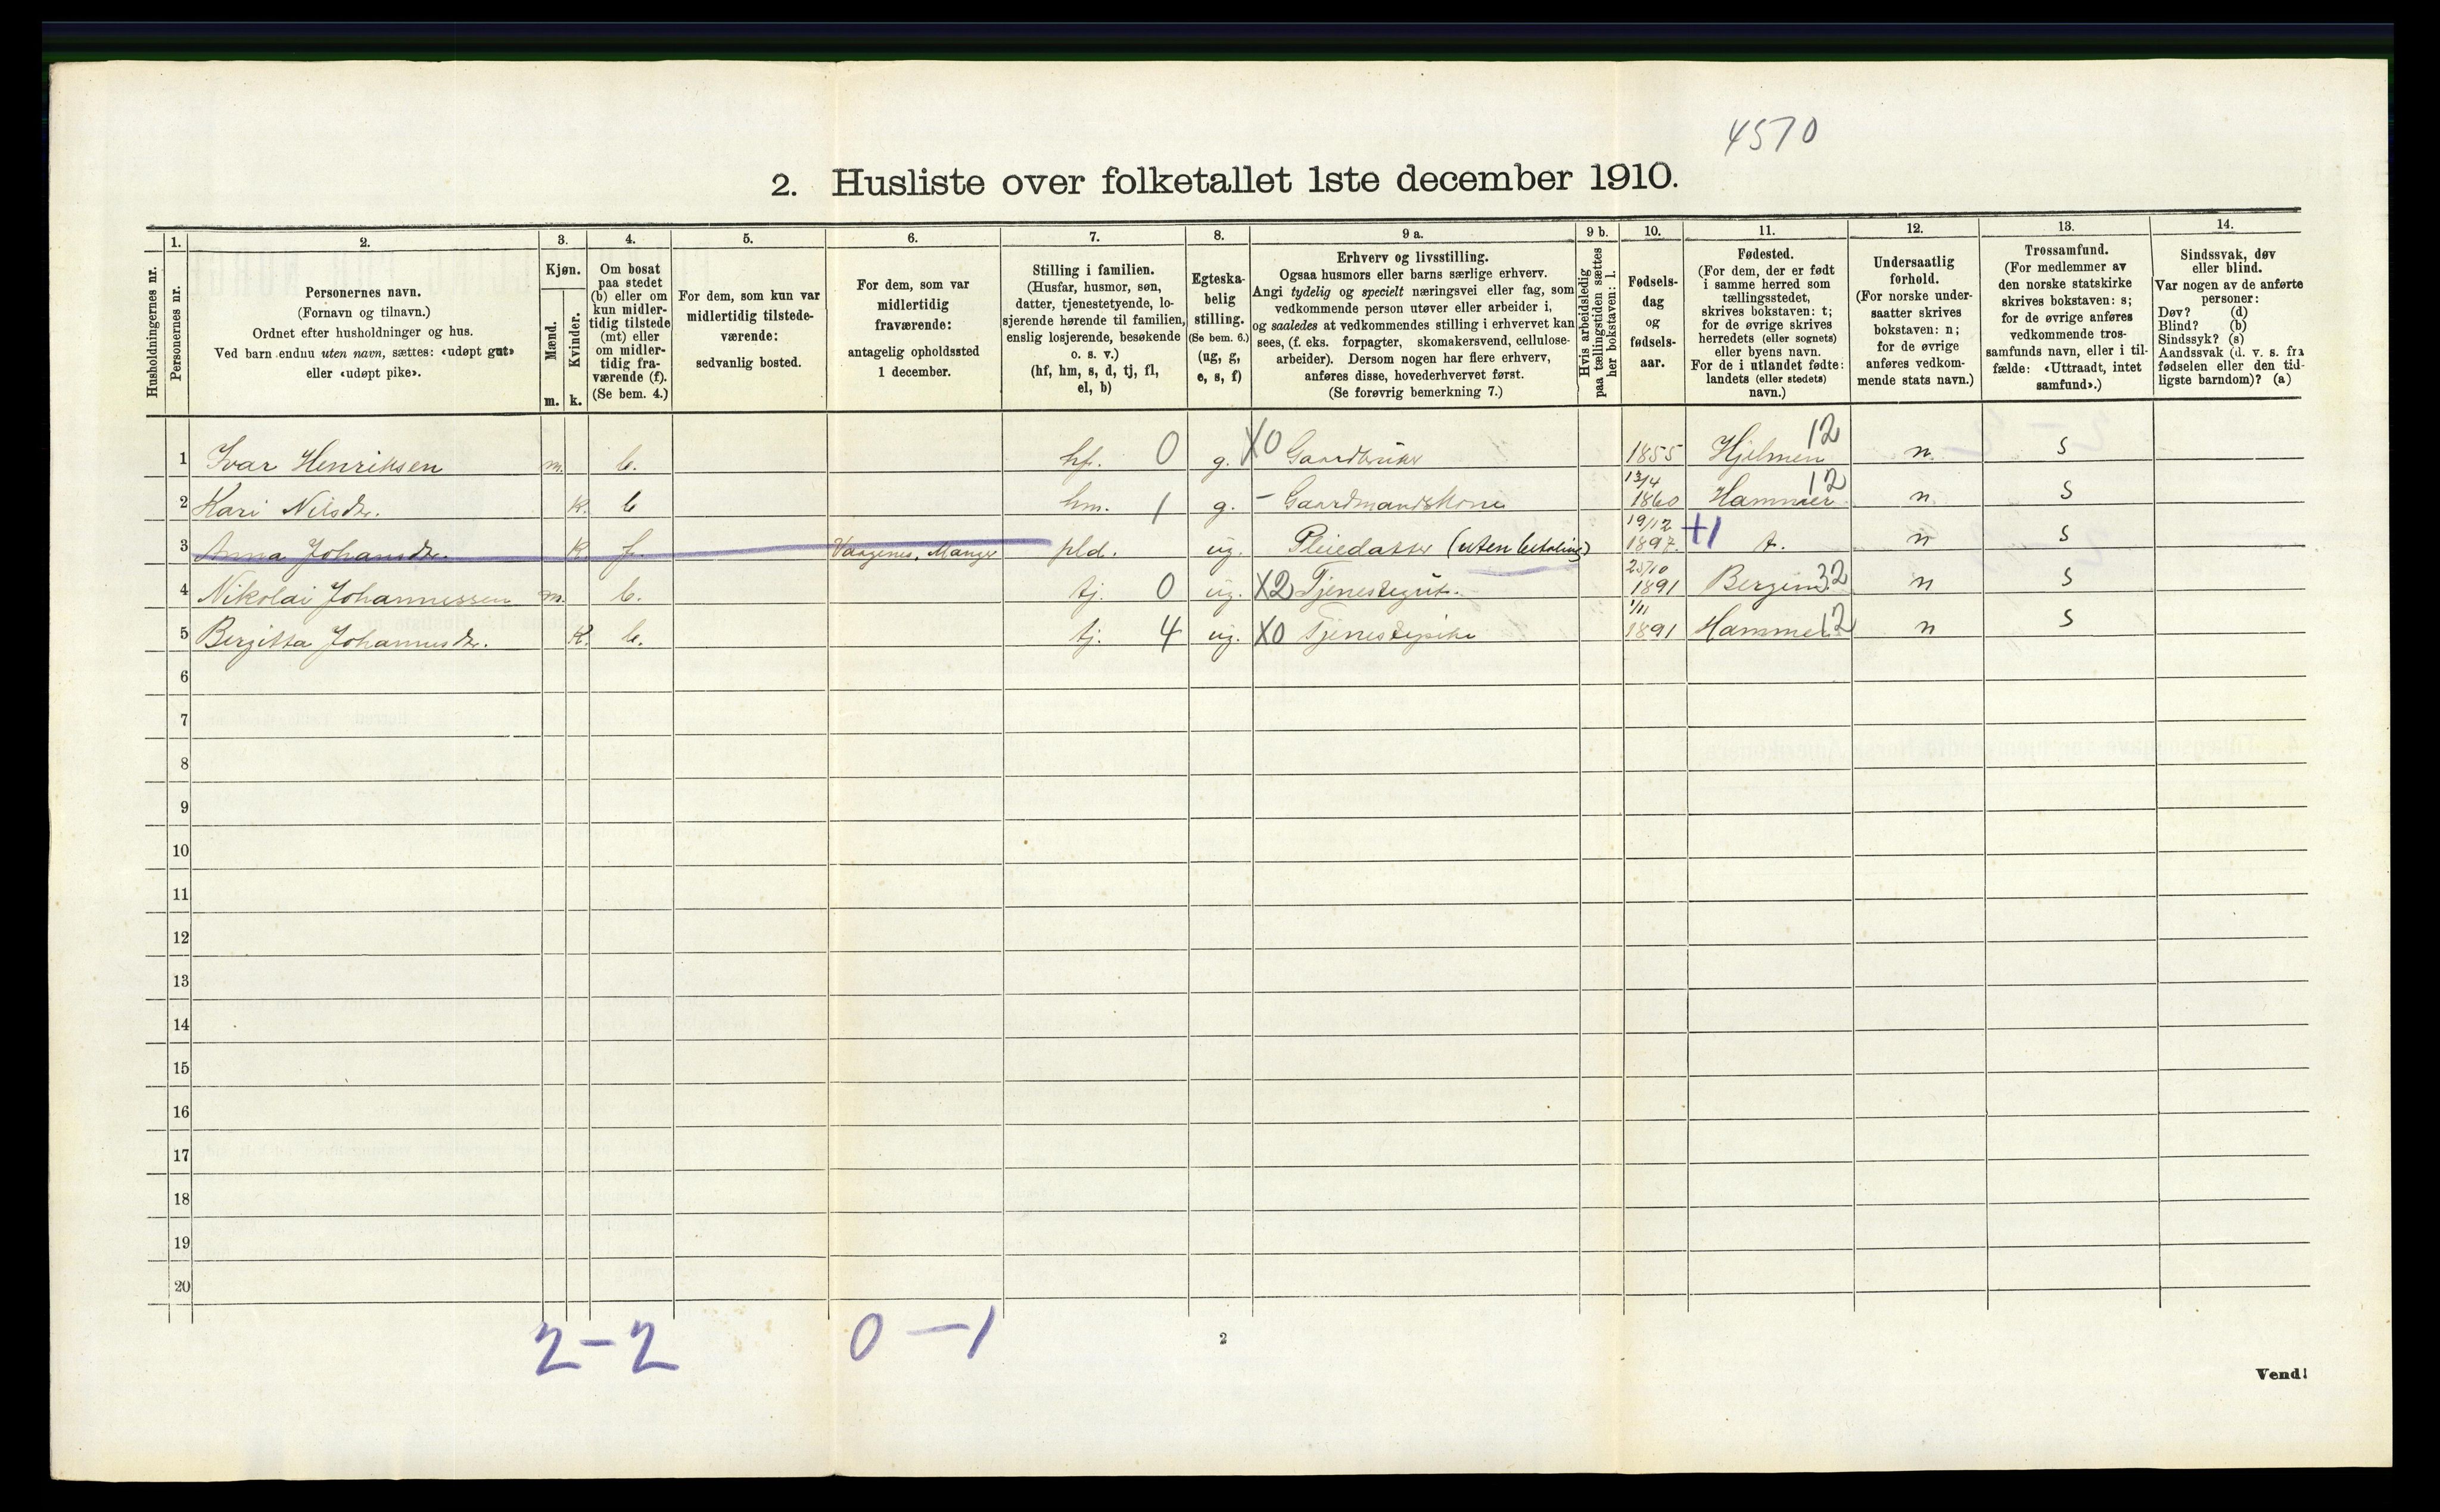 4570
2. Husliste over folketallet 1ste december 1910.
Husholdningernes nr.
1.
Personernes nr.
2.
Personernes navn.
(Fornavn og tilnavn.)
Ordnet efter husholdninger og hus.
Ved barn endnu uten navn, sættes: «udøpt gut»
eller «udøpt pike».
3.
Kjøn.
Mænd.
Kvinder.
m. k.
4.
Om bosat
paa stedet
(b) eller om
kun midler-
tidig tilstede
(mt) eller
om midler-
tidig fra-
værende (f).
(Se bem. 4.)
5.
For dem, som kun var
midlertidig tilstede-
værende:
sedvanlig bosted.
6.
For dem, som var
midlertidig
fraværende:
antagelig opholdssted
1 december.
7.
Stilling i familien.
(Husfar, husmor, søn,
datter, tjenestetyende, lo-
sjerende hørende til familien,
enslig losjerende, besøkende
o. s. v.)
(hf, hm, s, d, tj, fl,
el, b)
8.
Egteska-
belig
stilling.
(Se bem. 6.)
(ug, g,
e, s, f)
9 a.
Erhverv og livsstilling.
Ogsaa husmors eller barns særlige erhverv.
Angi tydelig og specielt næringsvei eller fag, som
vedkommende person utøver eller arbeider i,
og saaledes at vedkommendes stilling i erhvervet kan
sees, (f. eks. forpagter, skomakersvend, cellulose-
arbeider). Dersom nogen har flere erhverv,
anføres disse, hovederhvervet først.
(Se forøvrig bemerkning 7.)
9 b.
Hvis arbeidsledig
paa tællingstiden sættes
her bokstaven: l.
10.
Fødsels-
dag
og
fødsels-
aar.
11.
Fødested.
(For dem, der er født
i samme herred som
tællingsstedet,
skrives bokstaven: t;
for de øvrige skrives
herredets (eller sognets)
eller byens navn.
For de i utlandet fødte:
landets (eller stedets)
navn.)
12.
Undersaatlig
forhold.
(For norske under-
saatter skrives
bokstaven: n;
for de øvrige
anføres vedkom-
mende stats navn.)
13.
Trossamfund.
(For medlemmer av
den norske statskirke
skrives bokstaven: s;
for de øvrige anføres
vedkommende tros-
samfunds navn, eller i til-
fælde: «Uttraadt, intet
samfund».)
14.
Sindssvak, døv
eller blind.
Var nogen av de anførte
personer:
Døv? (d)
Blind? (b)
Sindssyk? (s)
Aandssvak (d. v. s. fra
fødselen eller den tid-
ligste barndom)? (a)
1 Ivar Henriksen m. b. hf. 0 g. X0 Gaardbruker 1855 Hjelmen 12 n s
2 Kari Nilsdr. k. b hm. 1 g. - Gaardmandskone 13/4 1860 Hammer 12 n s
3 Anna Johansdr. k. f. Vaagenes, Manger pld. ug. Pleiedatter (uten betaling) 19/12 1897. +1 t. n s
4 Nikolai Johannessen m. b. tj. 0 ug. X2 Tjenestegut. 25/10 1891 Bergen 32 n s
5 Bergitta Johannesdr. k. b. tj. 4 ug. X0 Tjenestepike 1/11 1891 Hammer 12 n s
6
7
8
9
10
11
12
13
14
15
16
17
18
19
20
2-2 0-1
2
Vend!